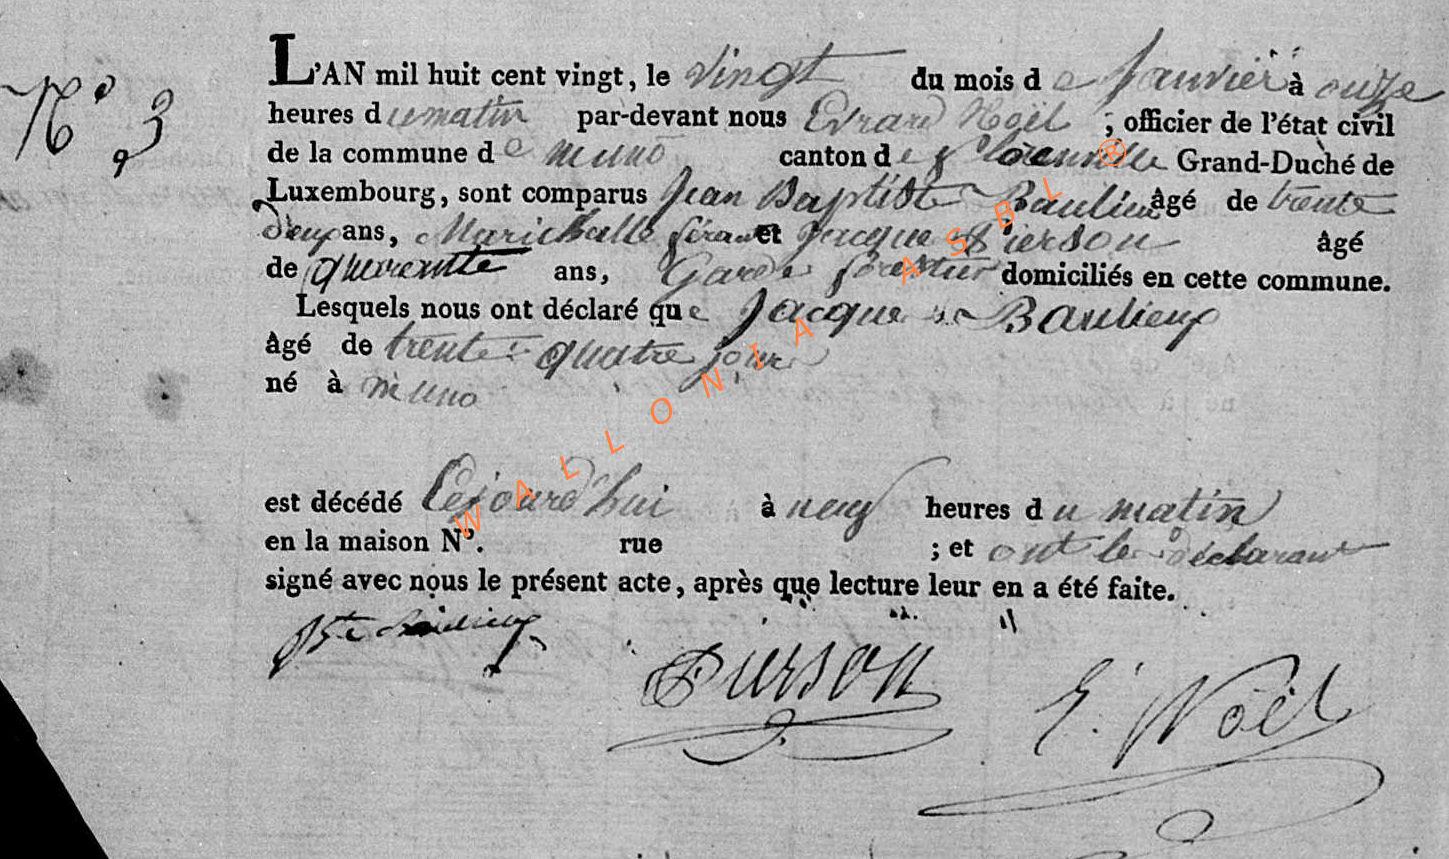 N° 3
L'AN mil huit cent vingt, le vingt du mois de Janvier à onze
heures du matin par-devant nous Evrard Noël, officier de l'état civil
de la commune de muno canton de florenville Grand-Duché de
Luxembourg, sont comparus Jean Baptiste Baulieux âgé de trente
deux ans, Marichalle ferant et Jacque Pierson âgé
de quarente ans, Garde forestier domiciliés en cette commune.
Lesquels nous ont déclaré que Jacque Baulieux
âgé de trente quatre jours
né à muno
est décédé Cejourd'hui à neuf heures du matin
en la maison N°. rue ; et ont les déclarant
signé avec nous le présent acte, après que lecture leur en a été faite.
Pierson
E. Noël
WALLONIA ASBL ®